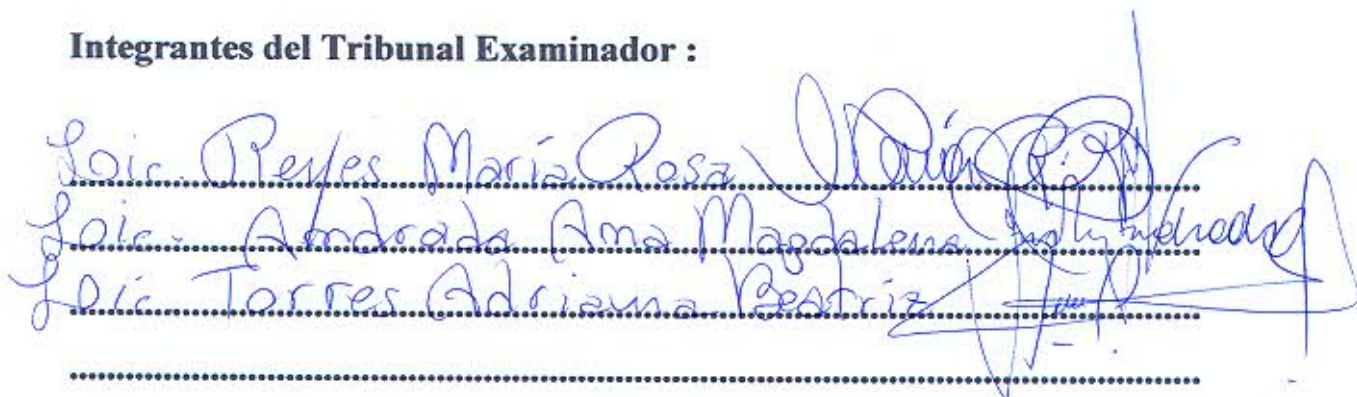 Integrantes del Tribunal Examinador :
Loic. Reyes María Rosa
Loic. Andrada Ana Magdalena
Loic. Torres Adriana Beatriz